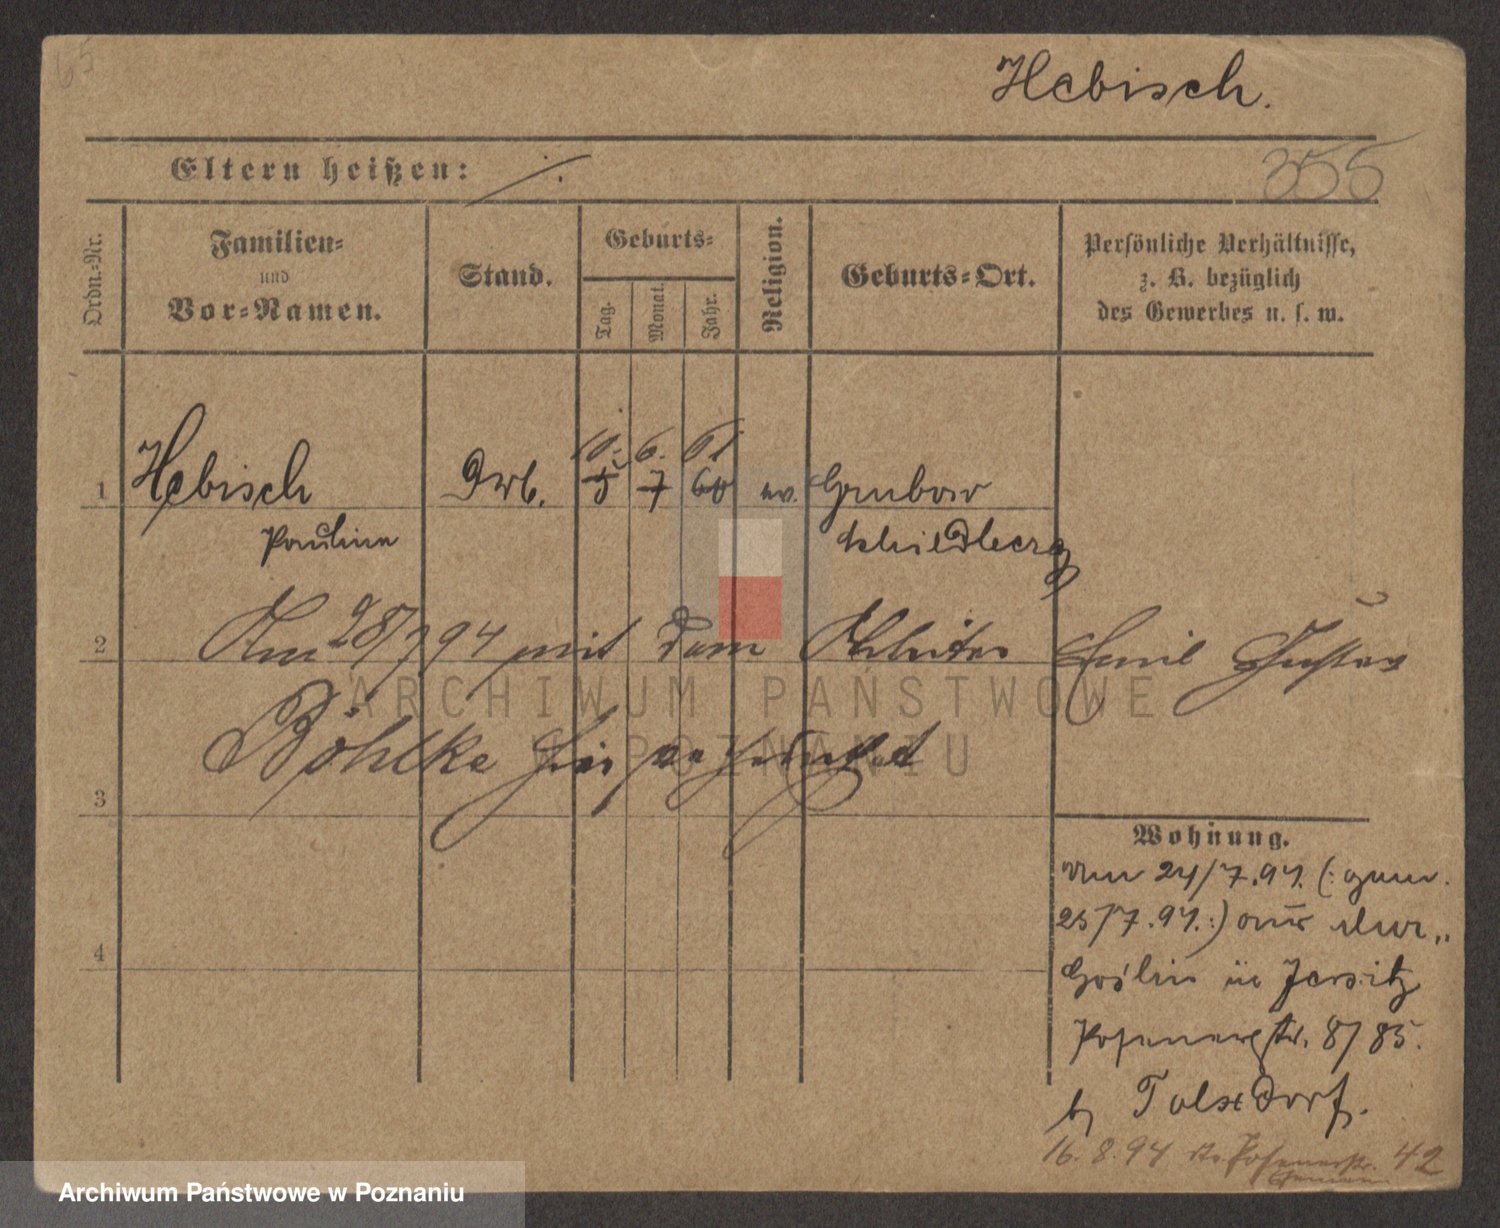 65
Hebisch.
Eltern heißen: ./.
355
Ordn.-Nr.
Familien-
und
Vor-Namen.
Stand.
Geburts-
Tag.
Monat.
Jahr.
Religion.
Geburts-Ort.
Persönliche Verhältnisse,
z. B. bezüglich
des Gewerbes u. s. w.
10. 6. 61
1 Hebisch Arb. 5 7 60 ev. Grubow
Pauline Schildberg
2 Am 28/7 94 mit dem Arbeiter Emil Gustav
ARCHIWUM PAŃSTWOWE
Böhlke hier verheirathet
W POZNANIU
3
Wohnung.
Am 24/7.94. (: gem.
25/7.94.:) aus Mur.
4
Goślin in Jersitz
Posenerstr. 8/85.
b Tolsdorf.
16.8.94 Posenerstr. 42
Archiwum Państwowe w Poznaniu